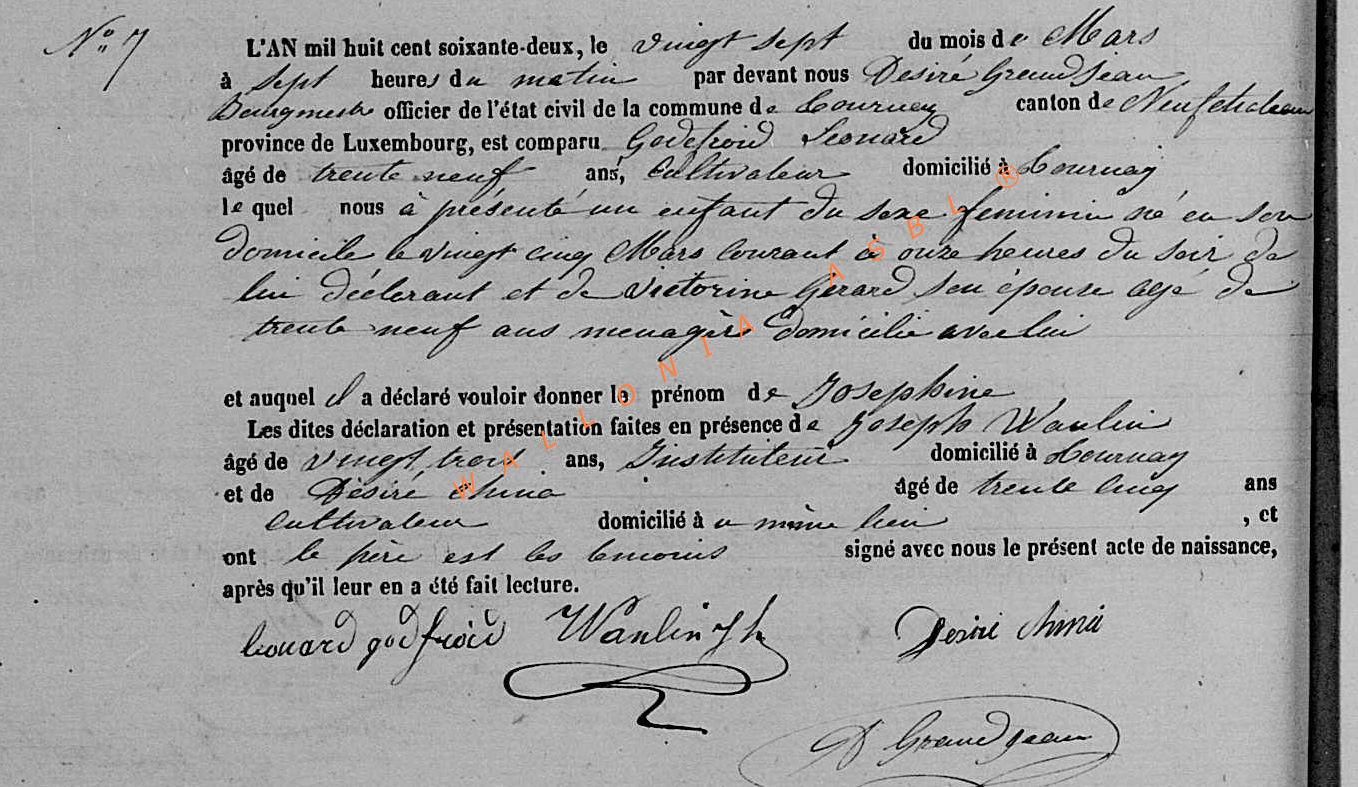 N° 7
L'AN mil huit cent soixante-deux, le vingt sept du mois de Mars
à sept heures du matin par devant nous Desiré Grandjean
Bourgmestre officier de l'état civil de la commune de Tournay canton de Neufchateau
province de Luxembourg, est comparu Godefroid Léonard
âgé de trente neuf ans, Cultivateur domicilié à Tournay
le quel nous à présenté un enfant du sexe feminin né en son
domicile le vingt cinq Mars courant à onze heures du soir de
lui déclarant et de Victorine Gérard son épouse agé de
trente neuf ans menagère domicilié avec lui
et auquel il a déclaré vouloir donner le prénom de Josephine
Les dites déclaration et présentation faites en présence de Joseph Wanlin
âgé de vingt trois ans, Instituteur domicilié à Tournay
et de Désiré China âgé de trente cinq ans
Cultivateur domicilié à u même lieu , et
ont le père est les temoins signé avec nous le présent acte de naissance,
après qu'il leur en a été fait lecture.
Léonard godfroid Wanlin Jh Desiré China
D Grandjean
WALLONIA ASBL ®